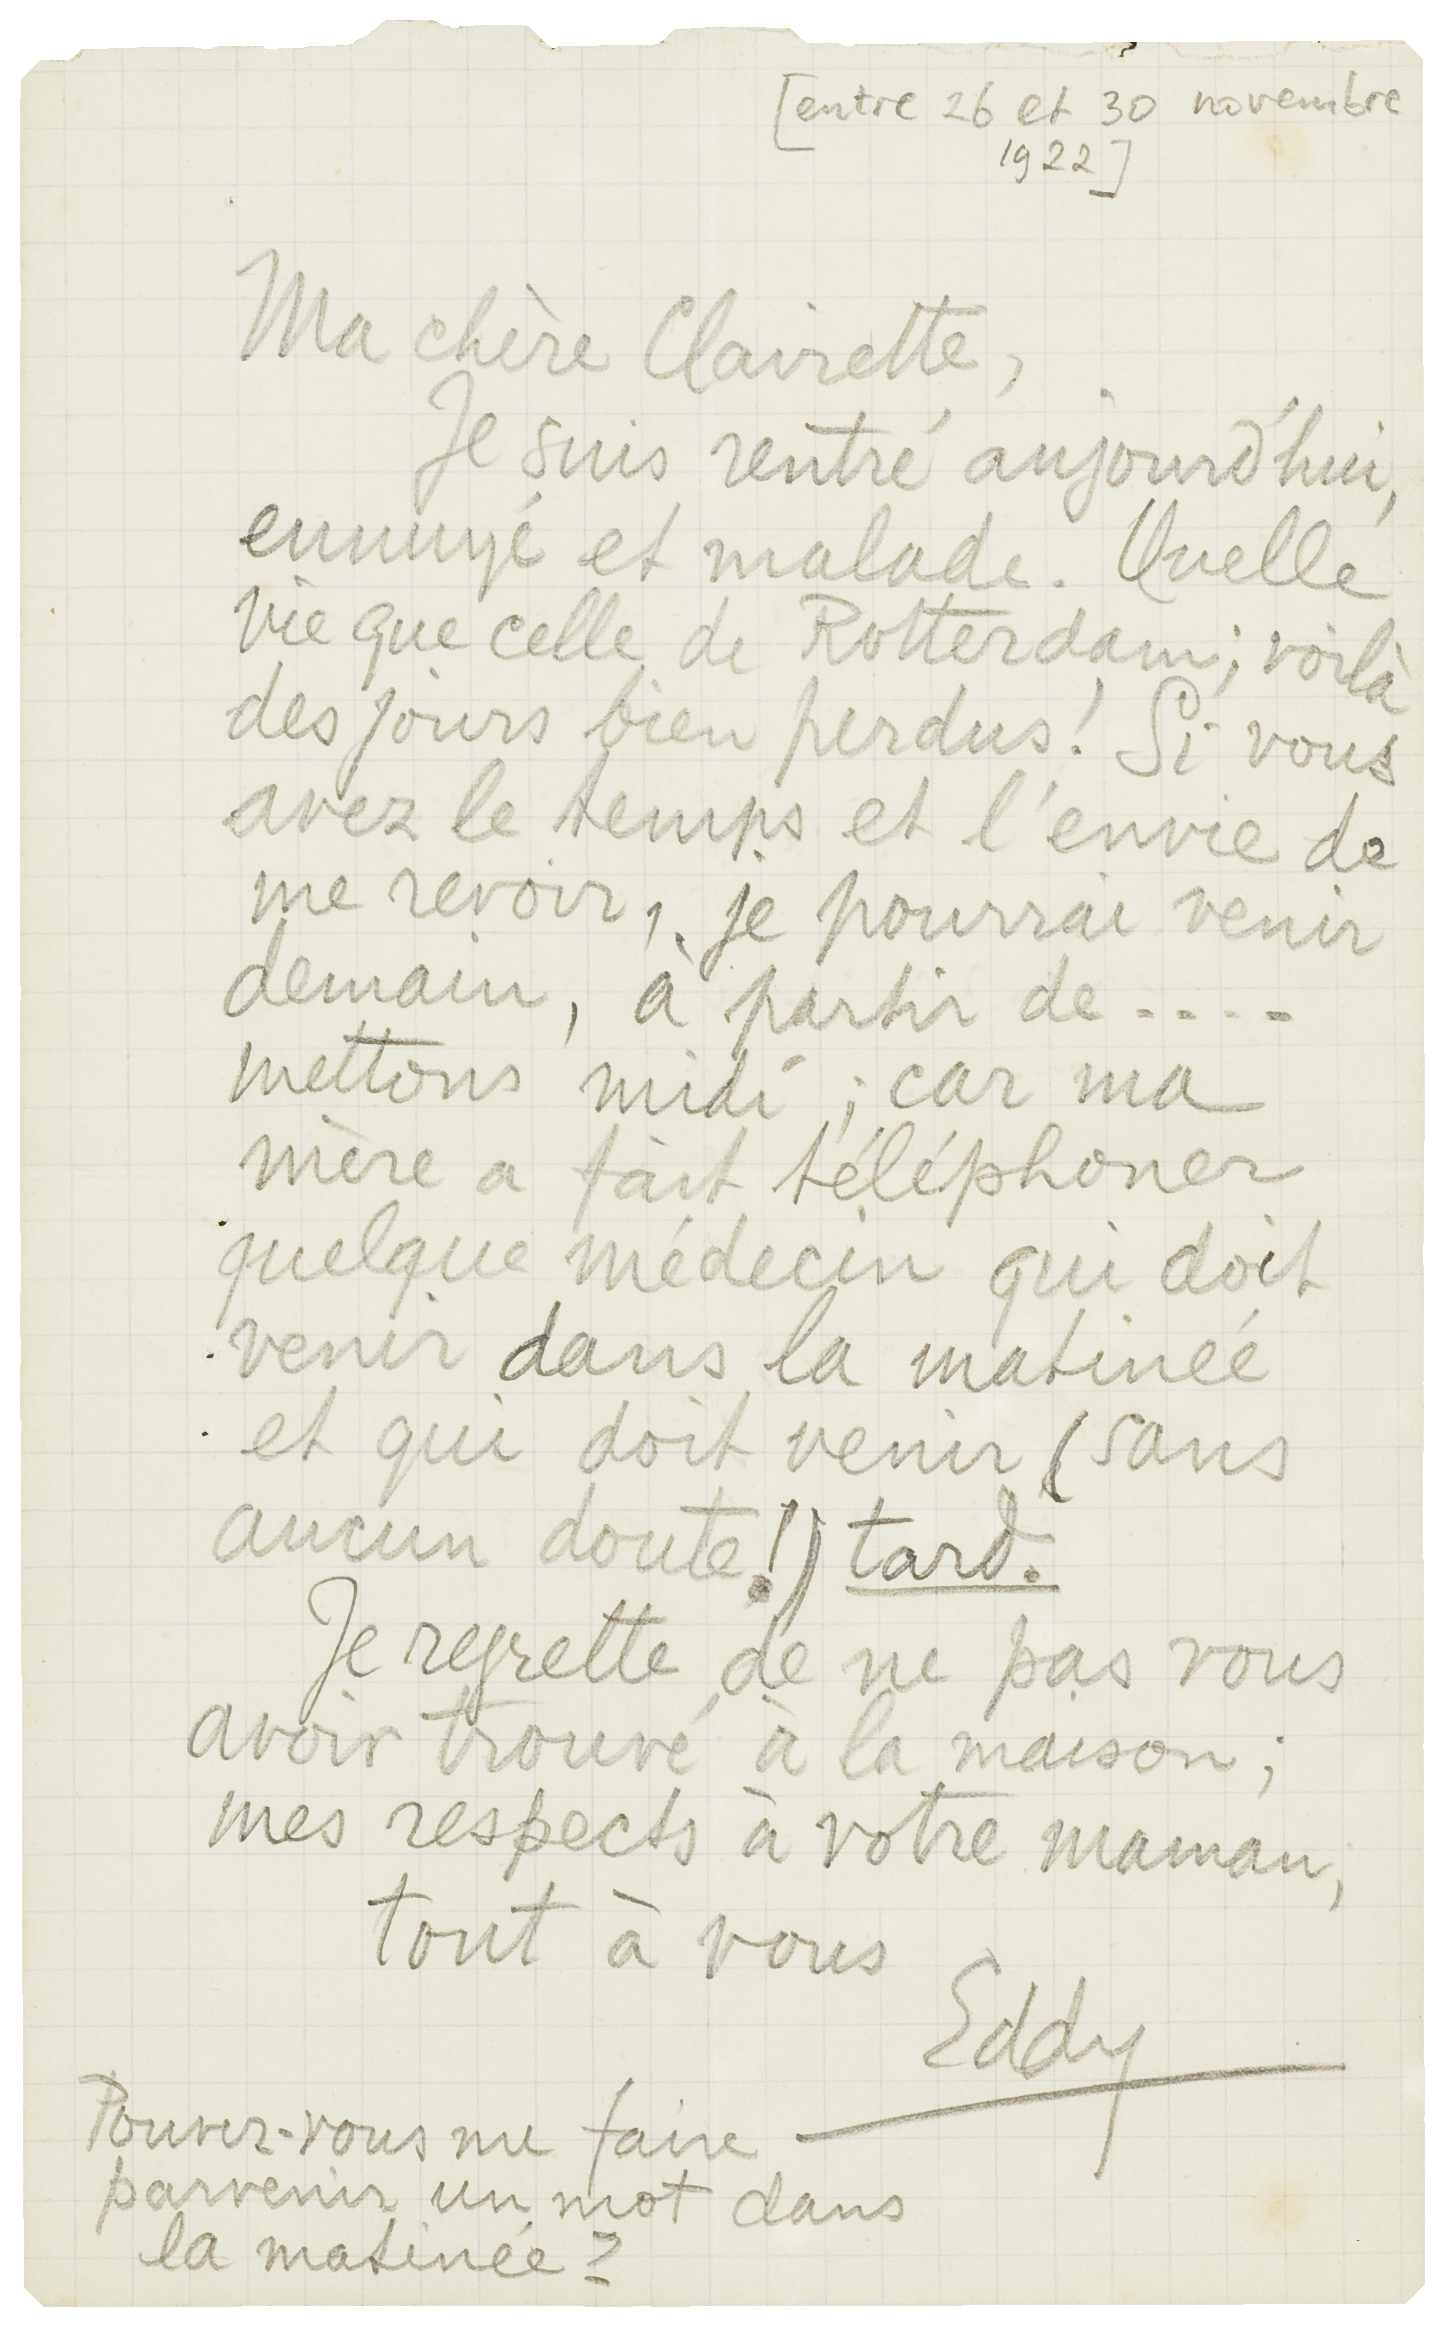 [entre 26 et 30 novembre
1922]
Ma chère Clairette,
Je suis rentré aujourd'hui,
ennuyé et malade. Quelle
vie que celle de Rotterdam; voilà
des jours bien perdus! Si vous
avez le temps et l'envie de
me revoir, je pourrai venir
demain, à partir de ....
mettons midi; car ma
mère a fait téléphoner
quelque médecin qui doit
venir dans la matinée
et qui doit venir (sans
aucun doute!) tard.
Je regrette de ne pas vous
avoir trouvé à la maison;
mes respects à votre maman,
tout à vous
Eddy
Pouvez-vous me faire
parvenir un mot dans
la matinée?